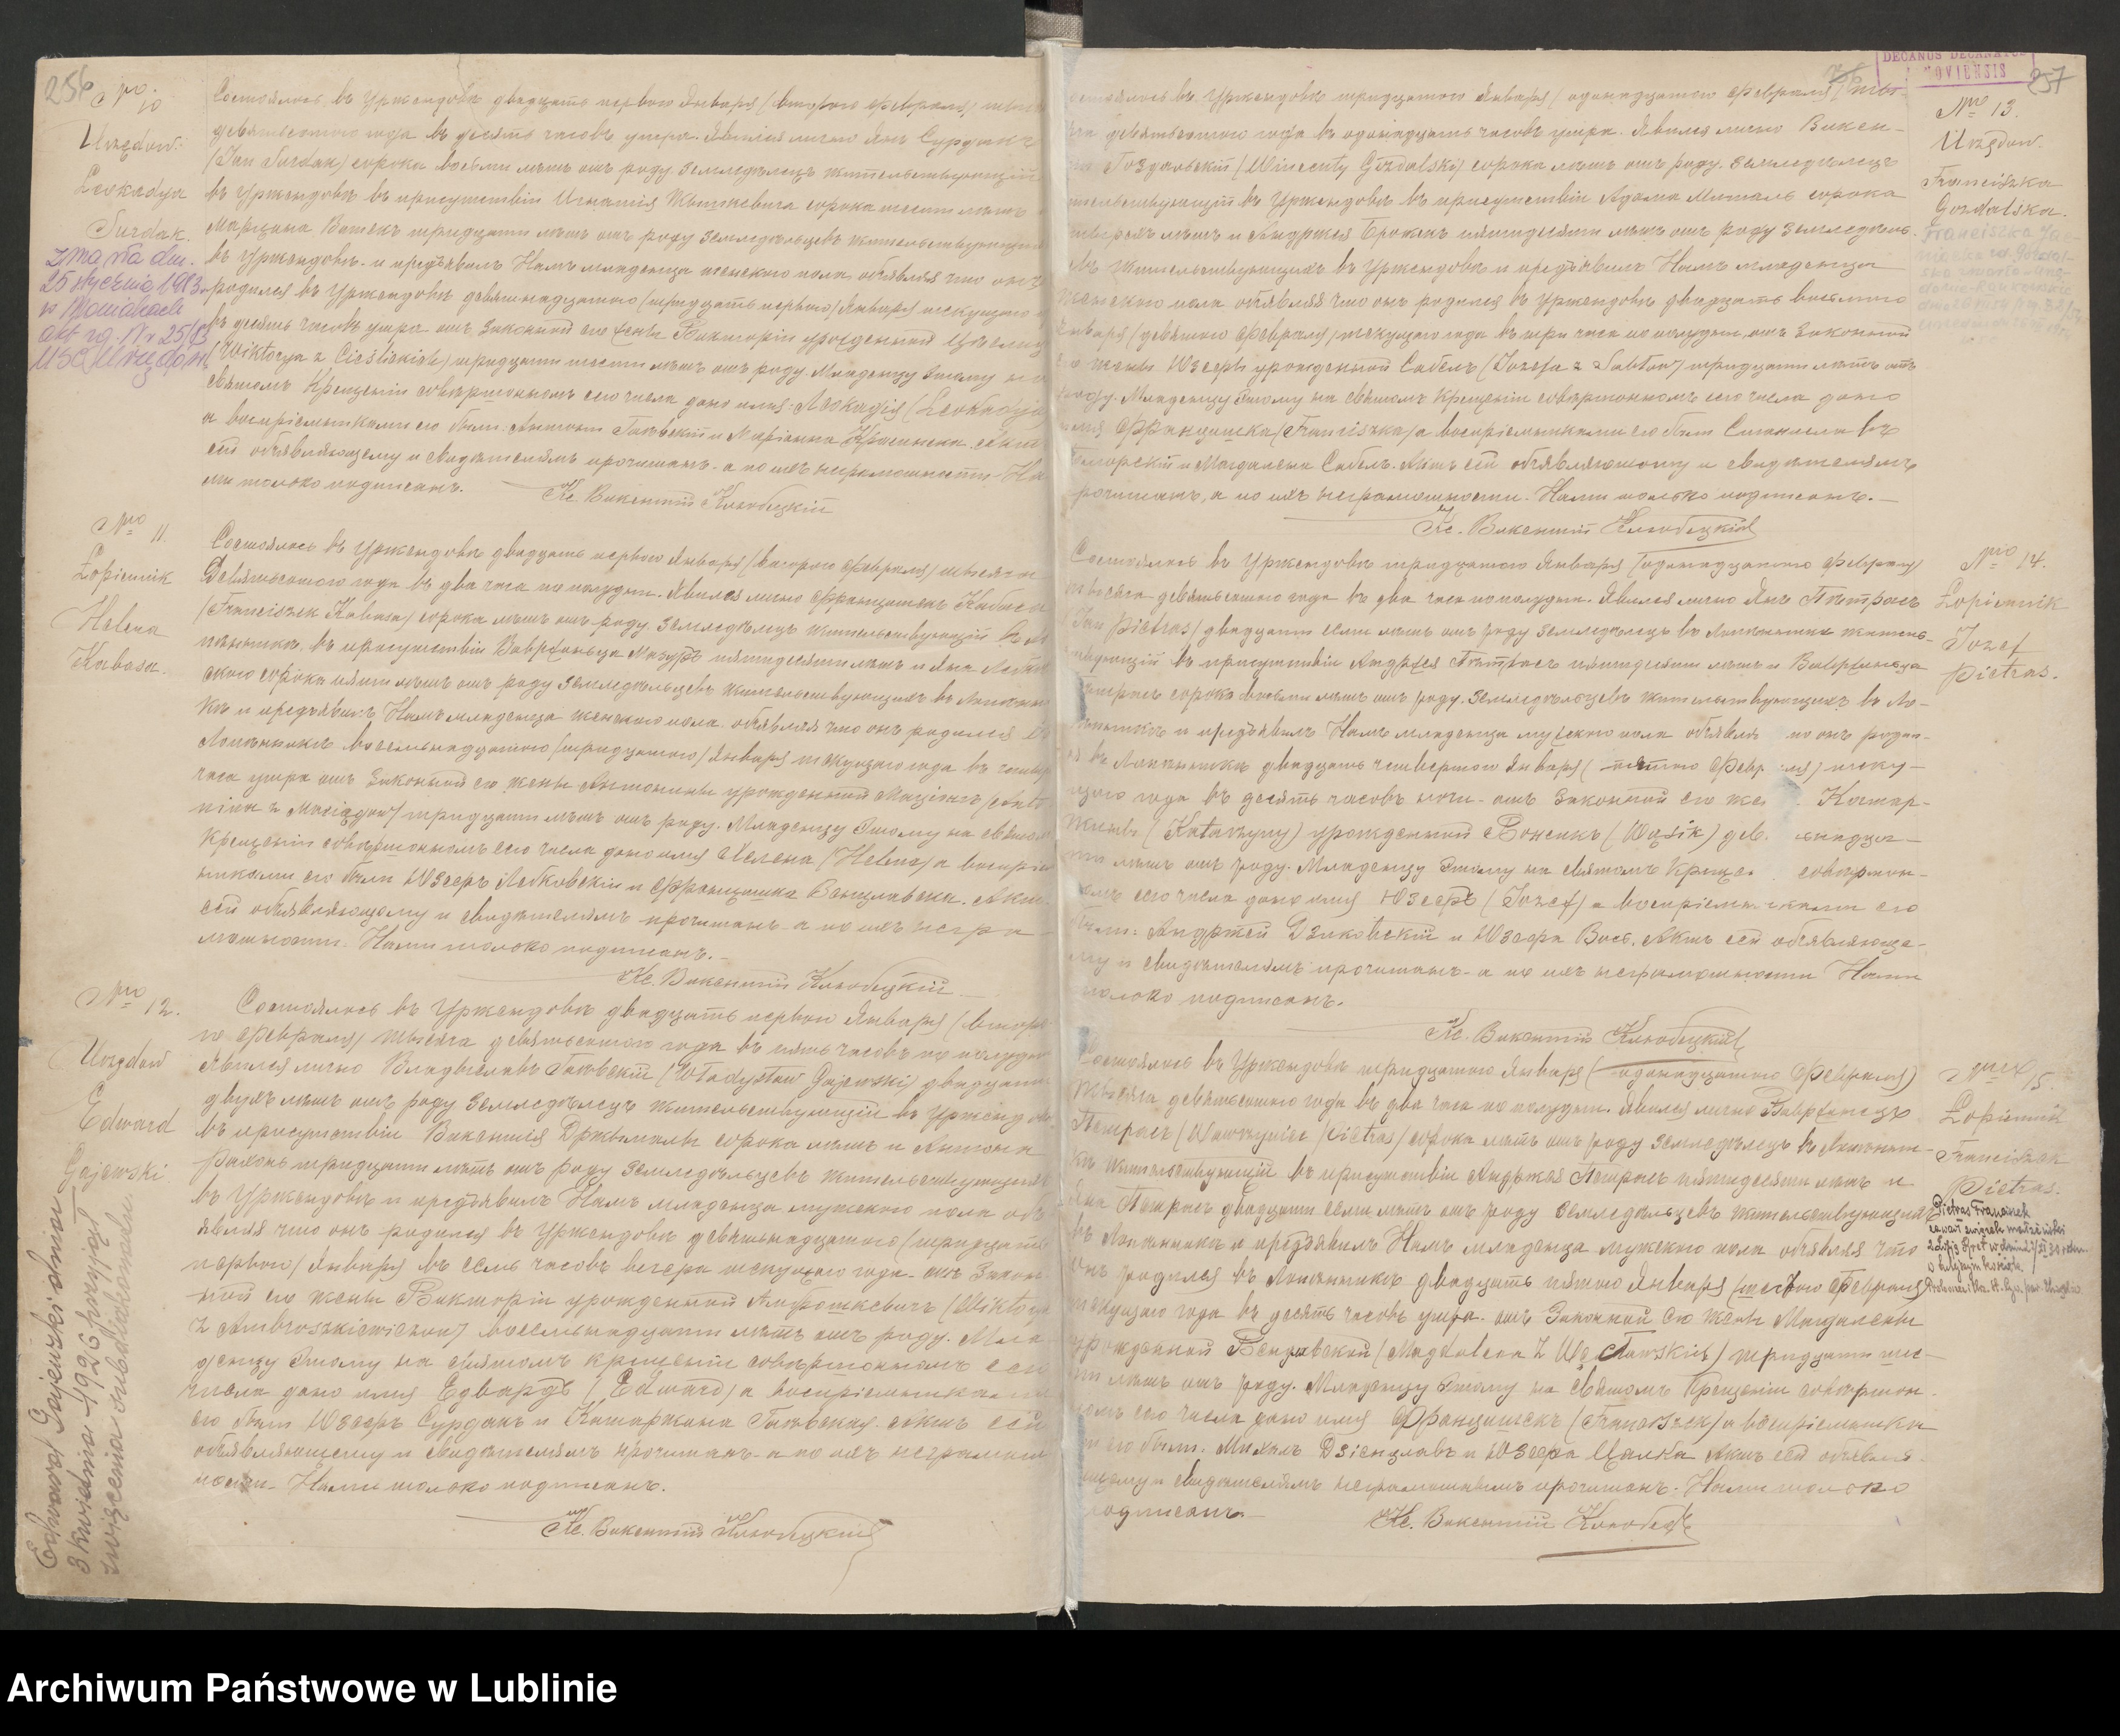 256
Nro 10
Urzędów.
Leokadya
Surdak.
zmarła dn.
25 stycznia 1983 r.
w Moniakach
akt zg. Nr 25/83
USC Urzędów
Состоялось въ Уржендовѣ двадцать перваго Января (втораго Февраля) тыся
девятьсотого года въ десять часовъ утра. Явился лично Янъ Сурдакъ
(Jan Surdak) сорока восьми лѣтъ отъ роду земледѣлецъ жительствующій
въ Уржендовѣ въ присутствіи Игнатія Жышкевича сорока шести лѣтъ
Марцина Ватекъ тридцати лѣтъ отъ роду земледѣльцевъ жительствующихъ
въ Уржендовѣ и предъявилъ Намъ младенца женского пола объявляя что онъ
родился въ Уржендовѣ девятнадцатого (тридцать перваго) Января текущаго
въ десять часовъ утра отъ законной его жены Викторіи урожденной
(Wiktorya z Cieślickich) тридцати шести лѣтъ отъ роду. Младенцу этому на
святомъ Крещеніи совершонномъ сего числа дано имя: Леокадія (Leokadya)
а воспріемниками его были: Антони Гаевскій и Маріанна Красинска. Актъ
сей объявляющему и свидѣтелямъ прочитанъ а по ихъ неграмотности На
ми только подписанъ.
Кс. Викентій Клюбецкій
Nro 11.
Łopiennik
Helena
Kabasa.
Состоялось въ Уржендовѣ двадцать перваго Января (второго Февраля) тысяча
Девятьсотого года въ два часа по полудни. Явился лично Францишекъ Кабаса
(Franciszek Kabasa) сорока лѣтъ отъ роду земледѣлецъ жительствующій въ Ло
пѣнникѣ, въ присутствіи Вавржиньца Мазуръ пятидесяти лѣтъ и Яна
ского сорока пяти лѣтъ отъ роду земледѣльцевъ жительствующихъ въ Лопѣнни
кѣ и предъявилъ Намъ младенца женского пола объявляя что онъ родился въ
Лопѣнникѣ восемьнадцатого (тридцатого) Января текущаго года въ четыре
часа утра отъ законной его жены Антонины урожденной Маціонгъ (Anto
nina z Maciągów) тридцати лѣтъ отъ роду. Младенцу этому на святомъ
Крещеніи совершонномъ сего числа дано имя Хелена (Helena) а воспріем
никами его были Юзефъ Лебковскій и Францишка Венцлавска. Актъ
сей объявляющому и свидѣтелямъ прочитанъ а по ихъ негра
мотности Нами только подписанъ.
Кс. Викентій Клюбецкій
Nro 12.
Urzędów
Edward
Gajewski.
Edward Gajewski dnia
3 kwietnia 1926 przyjął
święcenia subdiakonatu
Состоялось въ Уржендовѣ двадцать перваго Января (второ
го Февраля) тысяча девятьсотого года въ пять часовъ по полудни
Явился лично Владыславъ Гаевскій (Władysław Gajewski) двадцати
двухъ лѣтъ отъ роду земледѣлецъ жительствующій въ Уржендовѣ
въ присутствіи Викентія Држымалы сорока лѣтъ и Антона
Рахонь тридцати лѣтъ отъ роду земледѣльцевъ жительствующихъ
въ Уржендовѣ и предъявилъ Намъ младенца мужескаго пола объ
являя что онъ родился въ Уржендовѣ девятьнадцатого (тридцать
перваго) Января въ семь часовъ вечера текущаго года отъ закон
ной его жены Викторіи урожденной Амброшкевичъ (Wiktorya
z Ambroszkiewiczów) восемьнадцати лѣтъ отъ роду. Мла
денцу этому на святомъ крещеніи совершонномъ сего
числа дано имя Едвардъ (Edward) а воспріемниками
его были Юзефъ Сурдакъ и Катаржина Гаевская. Актъ сей
объявляющему и свидѣтелямъ прочитанъ а по ихъ неграмот
ности Нами только подписанъ.
Кс. Викентій Клюбецкій
DECANUS DECANATUS
257
Nro 13.
Urzędów.
Franciszka
Gozdalska.
Состоялось въ Уржендовѣ тридцатого Января (одинадцатого Февраля) тыс
ча девятьсотого года въ одинадцать часовъ утра. Явился лично Викен
ты Гоздальскій (Wincenty Gozdalski) сорока лѣтъ отъ роду земледѣлецъ
жительствующій въ Уржендовѣ въ присутствіи Адама Миталь сорока
четырехъ лѣтъ и Андржея Брожекъ пятидесяти лѣтъ отъ роду земледѣль
цевъ жительствующихъ въ Уржендовѣ и предъявилъ Намъ младенца
женского пола объявляя что онъ родился въ Уржендовѣ двадцать восьмого
Января (девятого Февраля) текущаго года въ три часа по полудни отъ законной
его жены Юзефы урожденной Сабелъ (Józefa z Sablów) тридцати лѣтъ отъ
роду. Младенцу этому на святомъ Крещеніи совершонномъ сего числа дано
имя Францишка (Franciszka) а воспріемниками его были Станиславъ
и Магдалена Сабелъ. Актъ сей объявляющому и свидѣтелямъ
прочитанъ, а по ихъ неграмотности Нами только подписанъ.
Кс. Викентій Клюбецкій
Nro 14.
Łopiennik
Józef
Pietras.
Состоялось въ Уржендовѣ тридцатого Января (одинадцатого Февраля)
тысяча девятьсотого года въ два часа по полудни. Явился лично Янъ Петрасъ
(Jan Pietras) двадцати семи лѣтъ отъ роду земледѣлецъ въ Лопѣнникѣ житель
ствующій въ присутствіи Андржея Петрасъ пятидесяти лѣтъ и Вавржиньца
Петрасъ сорока восьми лѣтъ отъ роду земледѣльцевъ жительствующихъ въ Ло
пѣнникѣ и предъявилъ Намъ младенца мужескаго пола объявляя что онъ роди
ся въ Лопѣнникѣ двадцать четвертого Января (пятого Февраля) теку
щаго года въ десять часовъ ночи отъ законной его жены Катар
жины (Katarzyny) урожденной Вонсикъ (Wąsik) девятьнадца
ти лѣтъ отъ роду. Младенцу этому на святомъ Крещеніи совершон
омъ сего числа дано имя Юзефъ (Józef) а воспріемниками его
были: Андржей Дзиковскій и Юзефа Вось. Актъ сей объявляюще
му и свидѣтелямъ прочитанъ а по ихъ неграмотности Нами
только подписанъ.
Кс. Викентій Клюбецкій
Nro 15.
Łopiennik
Franciszek
Pietras.
Pietras Franciszek
zawarł związek małżeński
Состоялось въ Уржендовѣ тридцатого Января (одинадцатого Февраля)
Тысяча девятьсотого года въ два часа по полудни. Явился лично Вавржинецъ
Петрасъ (Wawrzyniec Pietras) сорока лѣтъ отъ роду земледѣлецъ въ Лопѣнни
кѣ жительствующій въ присутствіи Андржея Петрасъ пятидесяти лѣтъ и
Яна Петрасъ двадцати семи лѣтъ отъ роду земледѣльцевъ жительствующихъ
въ Лопѣнникѣ и предъявилъ Намъ младенца мужескаго пола объявляя что
онъ родился въ Лопѣнникѣ двадцать пятого Января (шестого Февраля)
текущаго года въ десять часовъ утра отъ законной его жены Магдалены
урожденной Венцлавской (Magdalena z Węcławskich) тридцати шес
ти лѣтъ отъ роду. Младенцу этому на святомъ Крещеніи совершон
номъ сего числа дано имя Францишекъ (Franciszek) а воспріемника
ми его были: Михалъ Дзіенцлавъ и Юзефа Цалка. Актъ сей объявля
ющему и свидѣтелямъ неграмотнымъ прочитанъ. Нами только
подписанъ.
Кс. Викентій Клюбецкій
Archiwum Państwowe w Lublinie